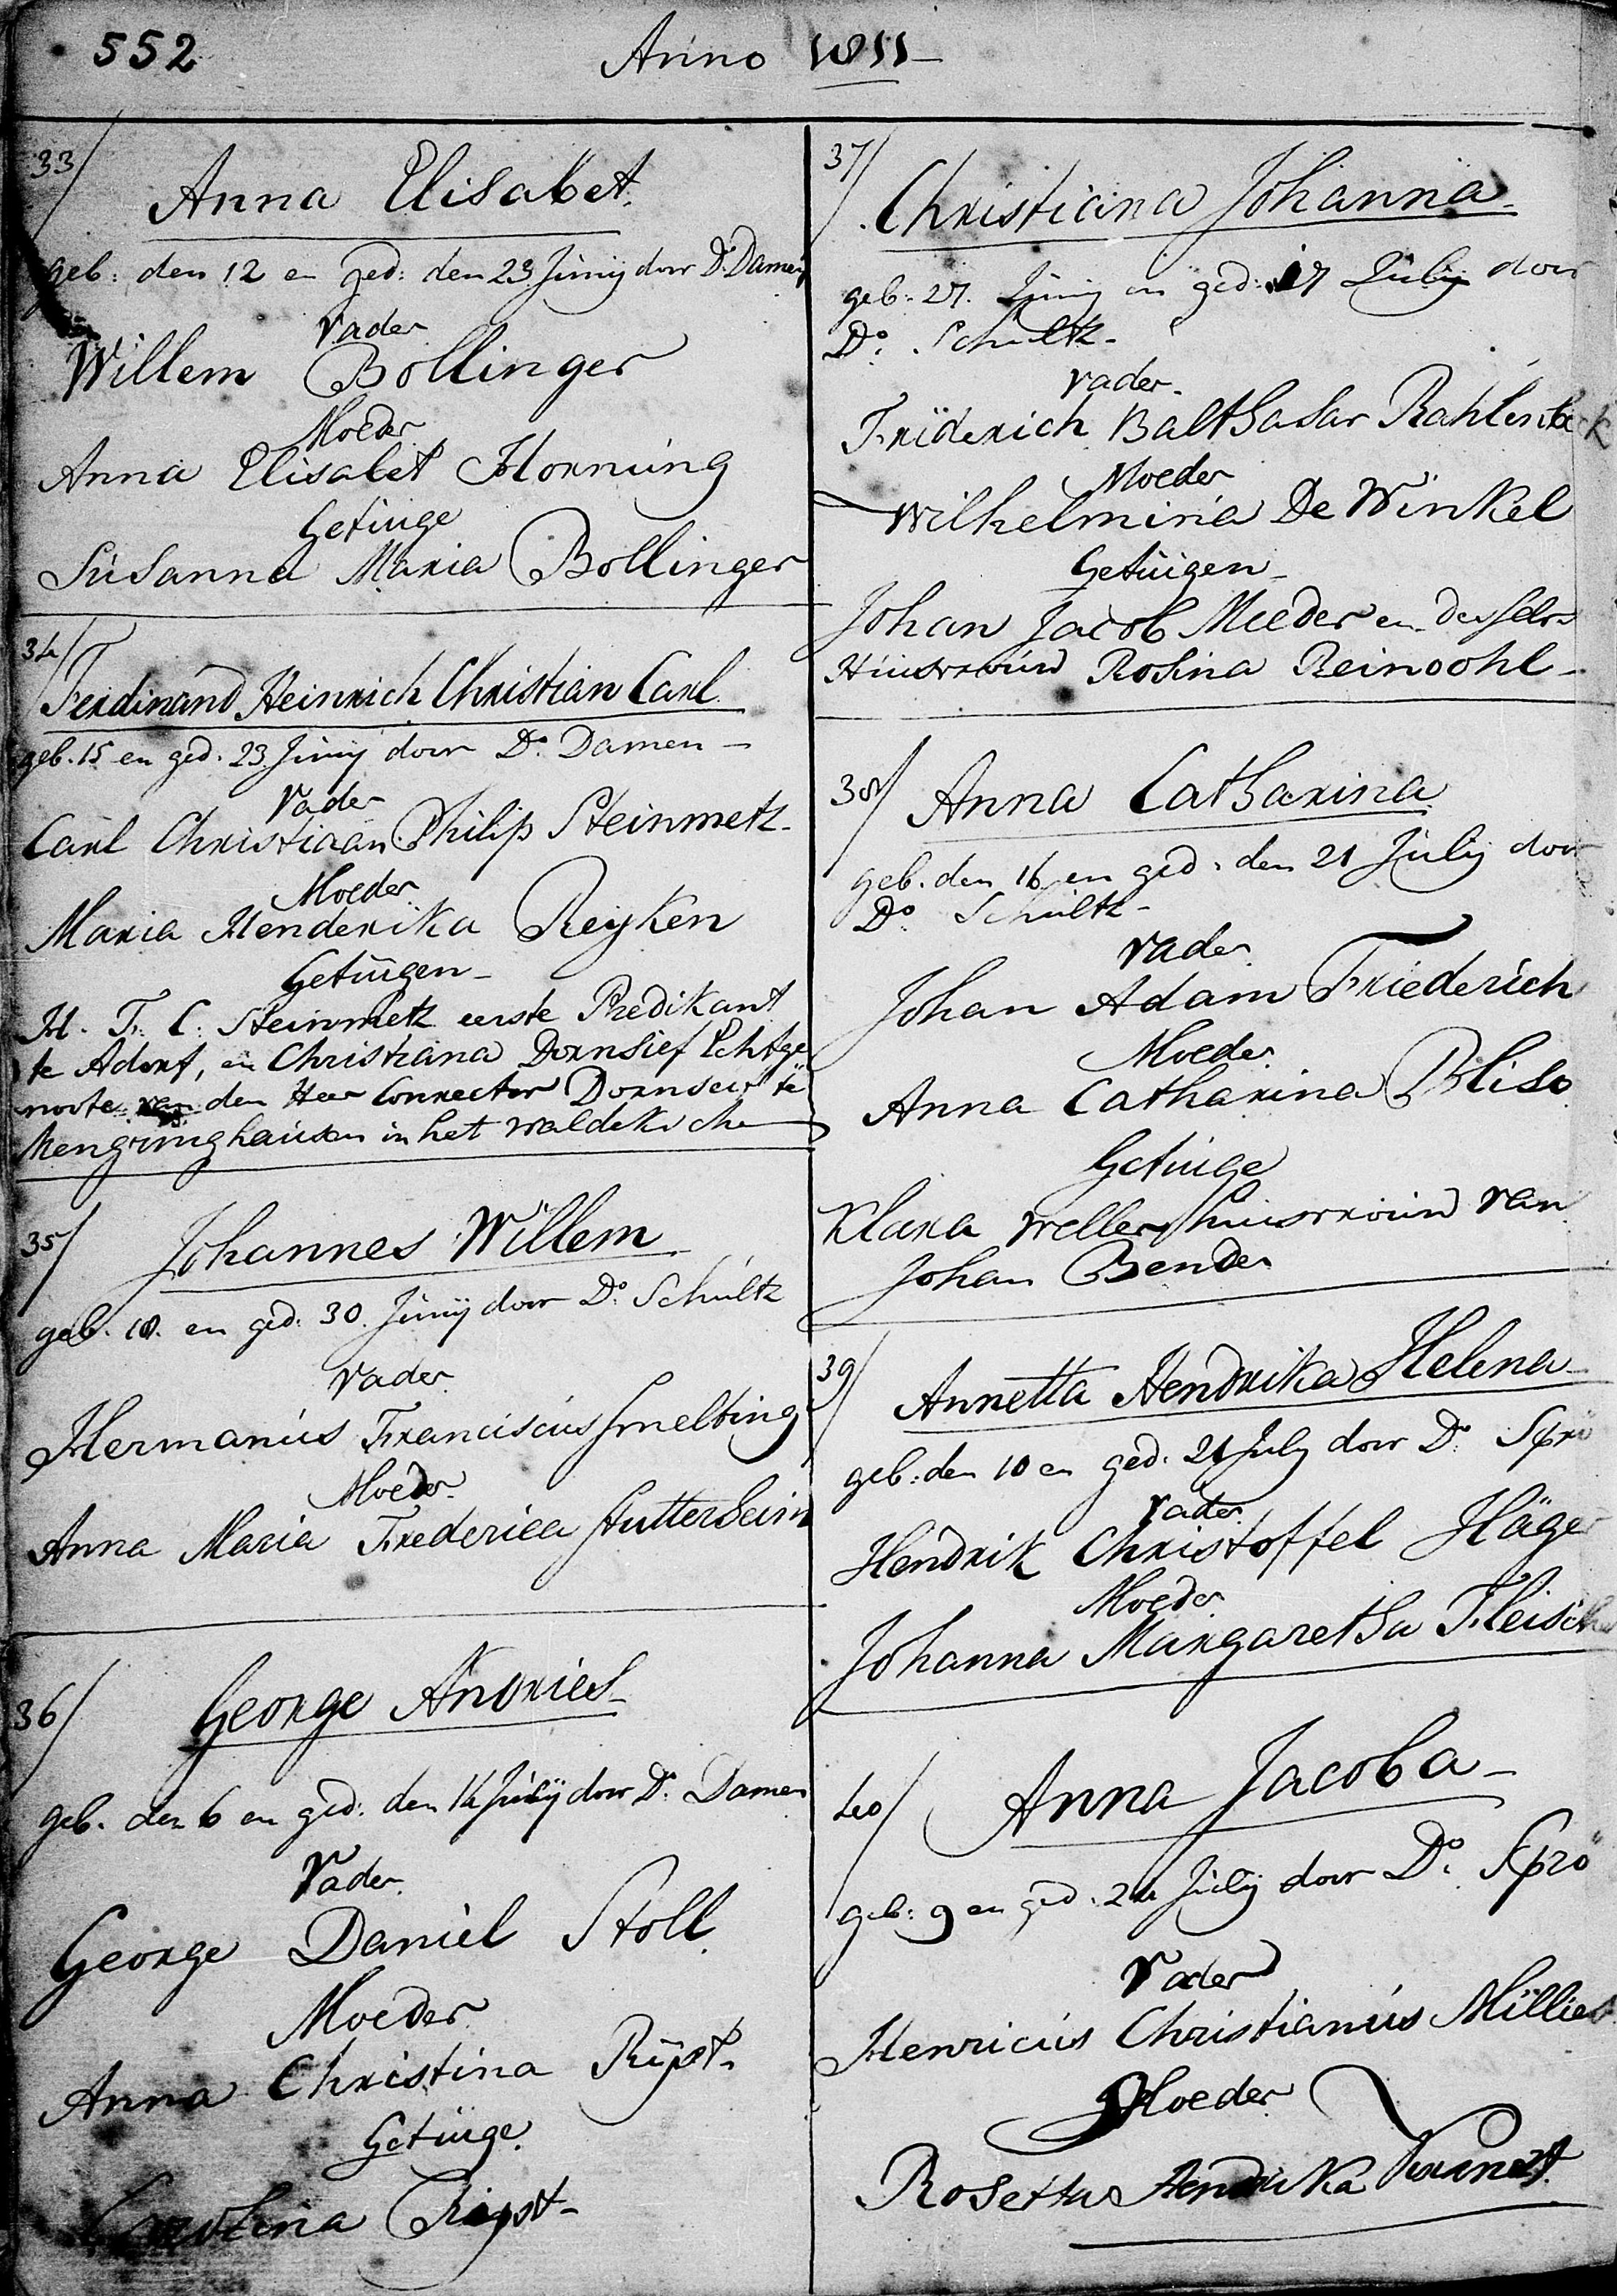 552
Anno 1811
33/
Anna Elisabet.
geb: den 12 en ged: den 23 Junij door Ds. Damen
Vader
Willem Bollinger
Moeder
Anna Elisabet Hornung
Getuige
Susanna Maria Bollinger
34/
Ferdinand Heinrich Christian Carl
geb. 15 en ged. 23 Junij door Do. Damen
Vader
Carl Christiaan Philip Steinmetz
Moeder
Maria Henderika Reyken
Getuigen
H. F. C. Steinmetz eerste Predikant
te Adorf, en Christiana Dornsief Echtge
noote van den Heer Conrector Dornseif te
Mengringhausen in het waldeksche
35/
Johannes Willem
geb. 18. en ged. 30. Junij door Do. Schultz
Vader
Hermanus Franciscus Smelting
Moeder
Anna Maria Frederica Stutterheim
36/
George Andries
geb. den 6 en ged: den 14 Julij door Ds. Damen
Vader
George Daniel Stoll
Moeder
Anna Christina Rijpst
Getuige
Carolina Rijpst
37/
Christiana Johanna
geb. 27. Junij en ged: 17 Julij door
Do. Schultz
Vader
Friderich Balthasar Rahlenbeck
Moeder
Wilhelmina De Winkel
Getuigen
Johan Jacob Meeder en deszelfs
Huisvrouw Rosina Reinoohl
38/
Anna Catharina
geb. den 16 en ged: den 21 Julij door
Do. Schultz
Vader
Johan Adam Friederich
Moeder
Anna Catharina Bliss
Getuige
Klara Weller huisvrouw van
Johan Bender
39/
Annetta Hendrika Helena
geb: den 10 en ged. 21 July door Ds. Sprö
Vader
Hendrik Christoffel Häger
Moeder
Johanna Margaretha Fleisch
40/
Anna Jacoba
geb: 9 en ged: 24 Julij door Do. Sprö
Vader
Henricus Christianus Millies
Moeder
Rosetta Hendrika